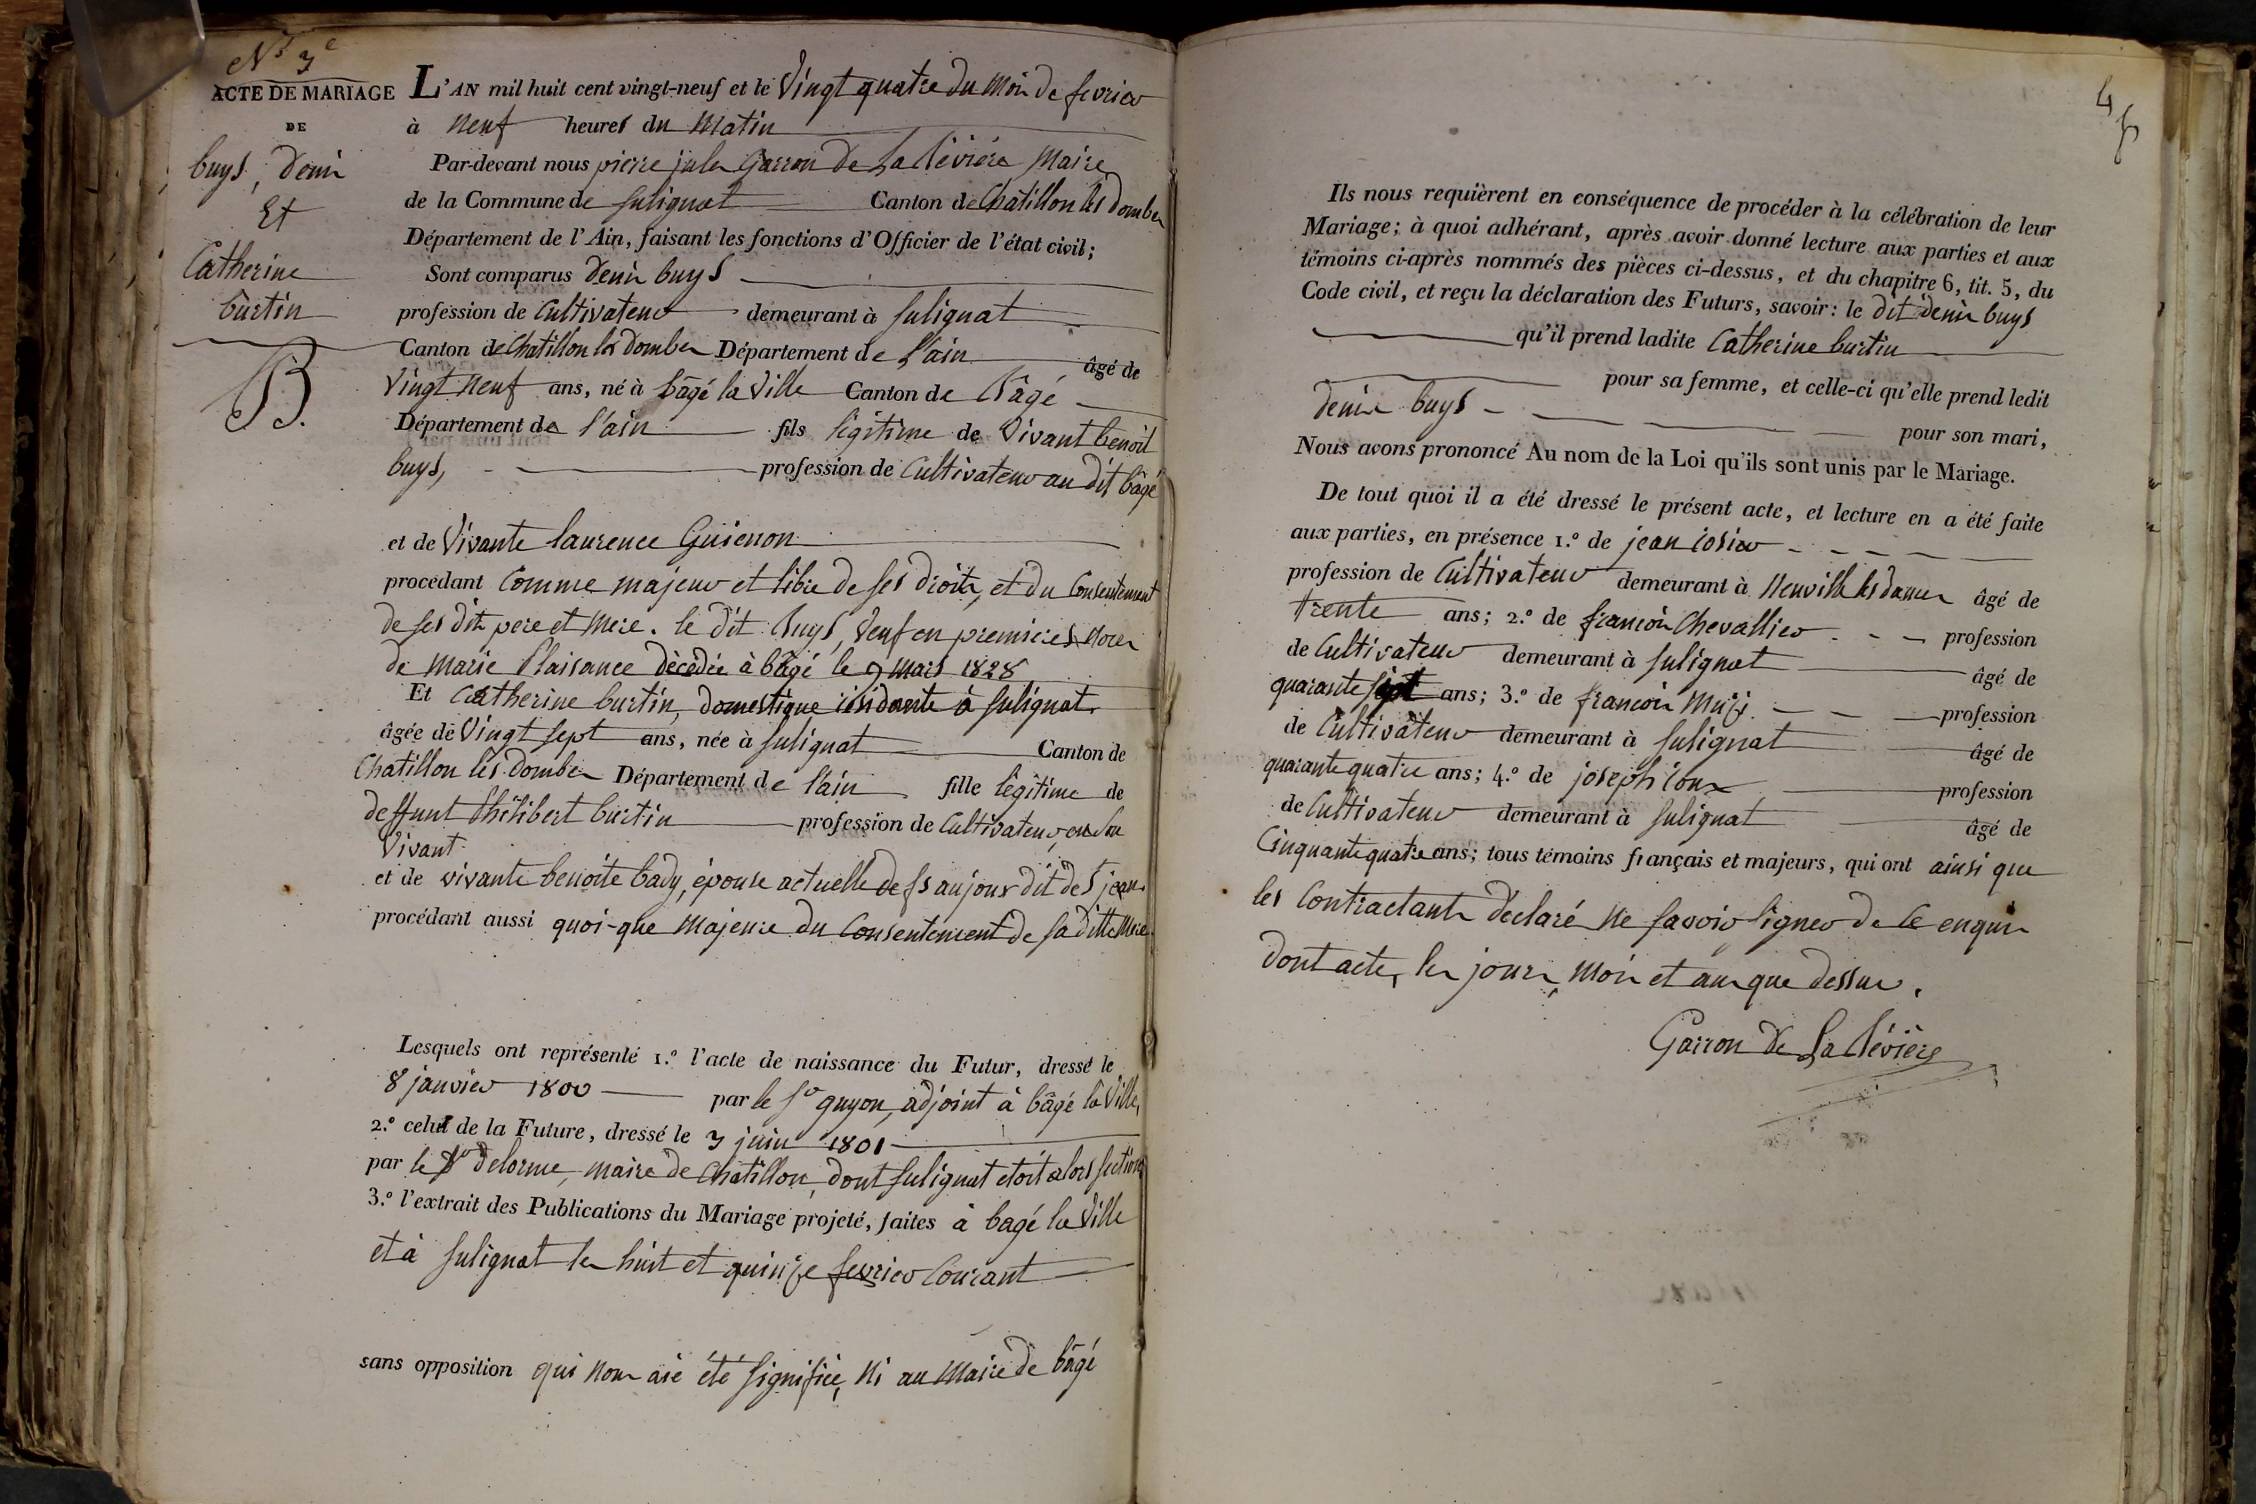 N.° 3e
ACTE DE MARIAGE
DE
buys, denis
Et
Catherine
burtin
B.
L'AN mil huit cent vingt-neuf et le Vingt quatre du Mois de fevrier
à Neuf heures du Matin
Par-devant nous pierre jules Garron de La Bévière Maire
de la Commune de Sulignat Canton de Chatillon les Dombes
Département de l'Ain, faisant les fonctions d'Officier de l'état civil;
Sont comparus denis buys
profession de Cultivateur demeurant à Sulignat
Canton de Chatillon les dombes Département de l'ain âgé de
Vingt Neuf ans, né à bâgé la Ville Canton de Bâgé
Département de l'ain fils légitime de Vivant benoit
buys, profession de Cultivateur au dit bâgé
et de Vivante laurence Guienon
procédant Comme majeur et libre de ses droits, et du Consentement
de ses dits pere et Mere. le dit Buys, Veuf en premieres Noces
de Marie Plaisance décédée à bâgé le 9 mars 1828
Et Catherine burtin, domestique résidante à Sulignat.
âgée de Vingt sept ans, née à Sulignat Canton de
Chatillon les dombes Département de l'ain fille légitime de
deffunt Philibert burtin profession de Cultivateur, en son
Vivant
et de vivante benoite bady, épouse actuelle de fs aujour dit de St jean.
procédant aussi quoi-que Majeure du Consentement de sa ditte Mere.
Lesquels ont représenté 1.° l'acte de naissance du Futur, dressé le
8 janvier 1800 par le Sr guyon, adjoint à bâgé la Ville,
2.° celui de la Future, dressé le 3 juin 1801
par le Sr delorme, maire de Chatillon, dont Sulignat etoit alors section
3.° l'extrait des Publications du Mariage projeté, faites à bagé la Ville
et à Sulignat les huit et quinze fevrier Courant
sans opposition qui nous aie été signifiée, Ni au Maire de bâgé
4
Ils nous requièrent en conséquence de procéder à la célébration de leur
Mariage; à quoi adhérant, après avoir donné lecture aux parties et aux
témoins ci-après nommés des pièces ci-dessus, et du chapitre 6, tit. 5, du
Code civil, et reçu la déclaration des Futurs, savoir: le dit denis buys
qu'il prend ladite Catherine burtin
pour sa femme, et celle-ci qu'elle prend ledit
denis buys
pour son mari,
Nous avons prononcé Au nom de la Loi qu'ils sont unis par le Mariage.
De tout quoi il a été dressé le présent acte, et lecture en a été faite
aux parties, en présence 1.° de jean
profession de Cultivateur demeurant à Neuville les dames âgé de
trente ans; 2.° de francois Chevallier profession
de Cultivateur demeurant à Sulignat âgé de
quarante sept ans; 3.° de francois profession
de Cultivateur demeurant à Sulignat âgé de
quarante quatre ans; 4.° de joseph profession
de Cultivateur demeurant à Sulignat âgé de
Cinquante quatre ans; tous témoins français et majeurs, qui ont ainsi que
les Contractants déclaré Ne savoir signer de ce enquis
dont acte, les jours, Mois et an que dessus.
Garron de La Bévière